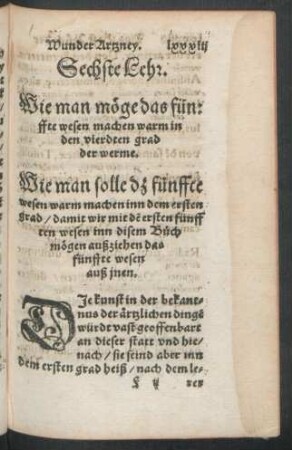 Wunder Artzney. lxxxiij
Sechste Lehr.
Wie man möge das fünf⸗
ffte wesen machen warm in
den vierdten grad
der werme.
Wie man solle dz fünffte
wesen warm machen inn dem ersten
grad / damit wir mit dē ersten fünff
ten wesen inn disem Bůch
mögen außziehen das
fünffte wesen
auß jnen.
DIe kunst in der bekant⸗
nus der ärtzlichen dings
würdt vast geoffenbart
an dieser statt vnd hie⸗
nach / sie seind aber inn
dem ersten grad heiß / nach dem le⸗
L ij rer